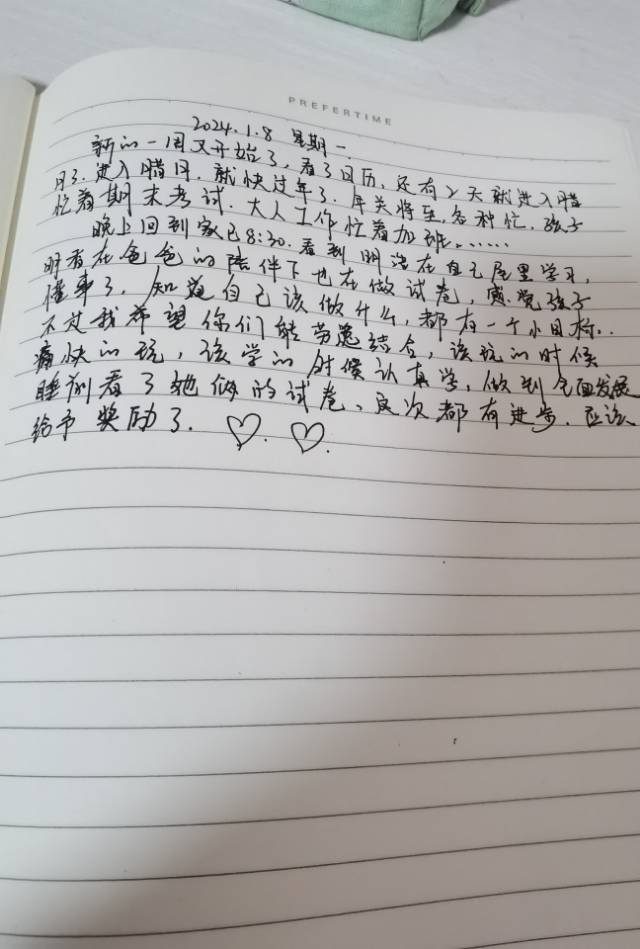 PREFERTIME
2024.1.8 星期一.
新的一周又开始了,看了日历,还有2天就进入腊
月了.进入腊月.就快过年了.年关将至,各种忙.孩子
忙着期末考试.大人工作忙着加班.......
晚上回到家已8:30.看到明浩在自己屋里学习,
明看在爸爸的陪伴下也在做试卷,感觉孩子
懂事了,知道自己该做什么,都有一个小目标..
不过我希望你们能劳逸结合,该玩的时候
痛快的玩,该学的时候认真学,做到全面发展
睡前看了她俩的试卷、这次都有进步.应该
给予奖励了.